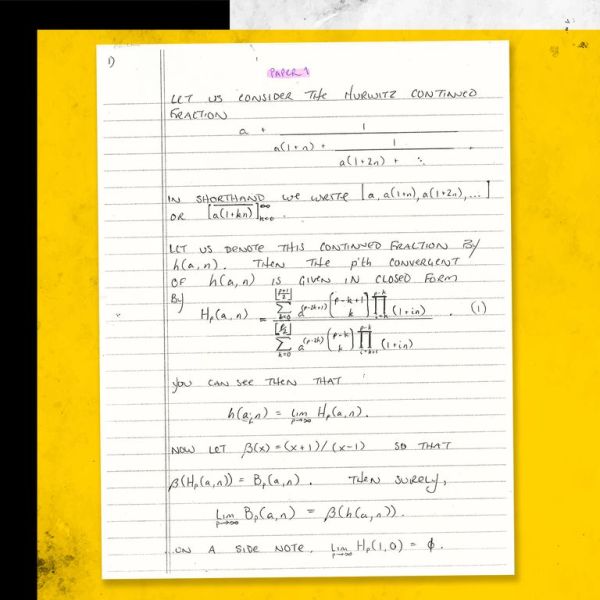 1)
PAPER 1
LET US CONSIDER THE HURWITZ CONTINUED
FRACTION
a + 1
a(1+n) + 1
a(1+2n) + ⋱ .
IN SHORTHAND WE WRITE [a, a(1+n), a(1+2n), ...]
OR [a(1+kn)]_{k=0}^{∞} .
LET US DENOTE THIS CONTINUED FRACTION BY
h(a,n). THEN THE p'th CONVERGENT
OF h(a,n) IS GIVEN IN CLOSED FORM
BY
H_p(a,n) = \frac{\sum_{k=0}^{[\frac{p+1}{2}]} a^{(p-2k+1)} \binom{p-k+1}{k} \prod_{i=k}^{p-k} (1+in)}{\sum_{k=0}^{[\frac{p}{2}]} a^{(p-2k)} \binom{p-k}{k} \prod_{i=k+1}^{p-k} (1+in)} . (1)
YOU CAN SEE THEN THAT
h(a,n) = lim_{p→∞} H_p(a,n).
NOW LET β(x) = (x+1)/(x-1) SO THAT
β(H_p(a,n)) = B_p(a,n). THEN SURELY,
lim_{p→∞} B_p(a,n) = β(h(a,n)).
ON A SIDE NOTE, lim_{p→∞} H_p(1,0) = ϕ.